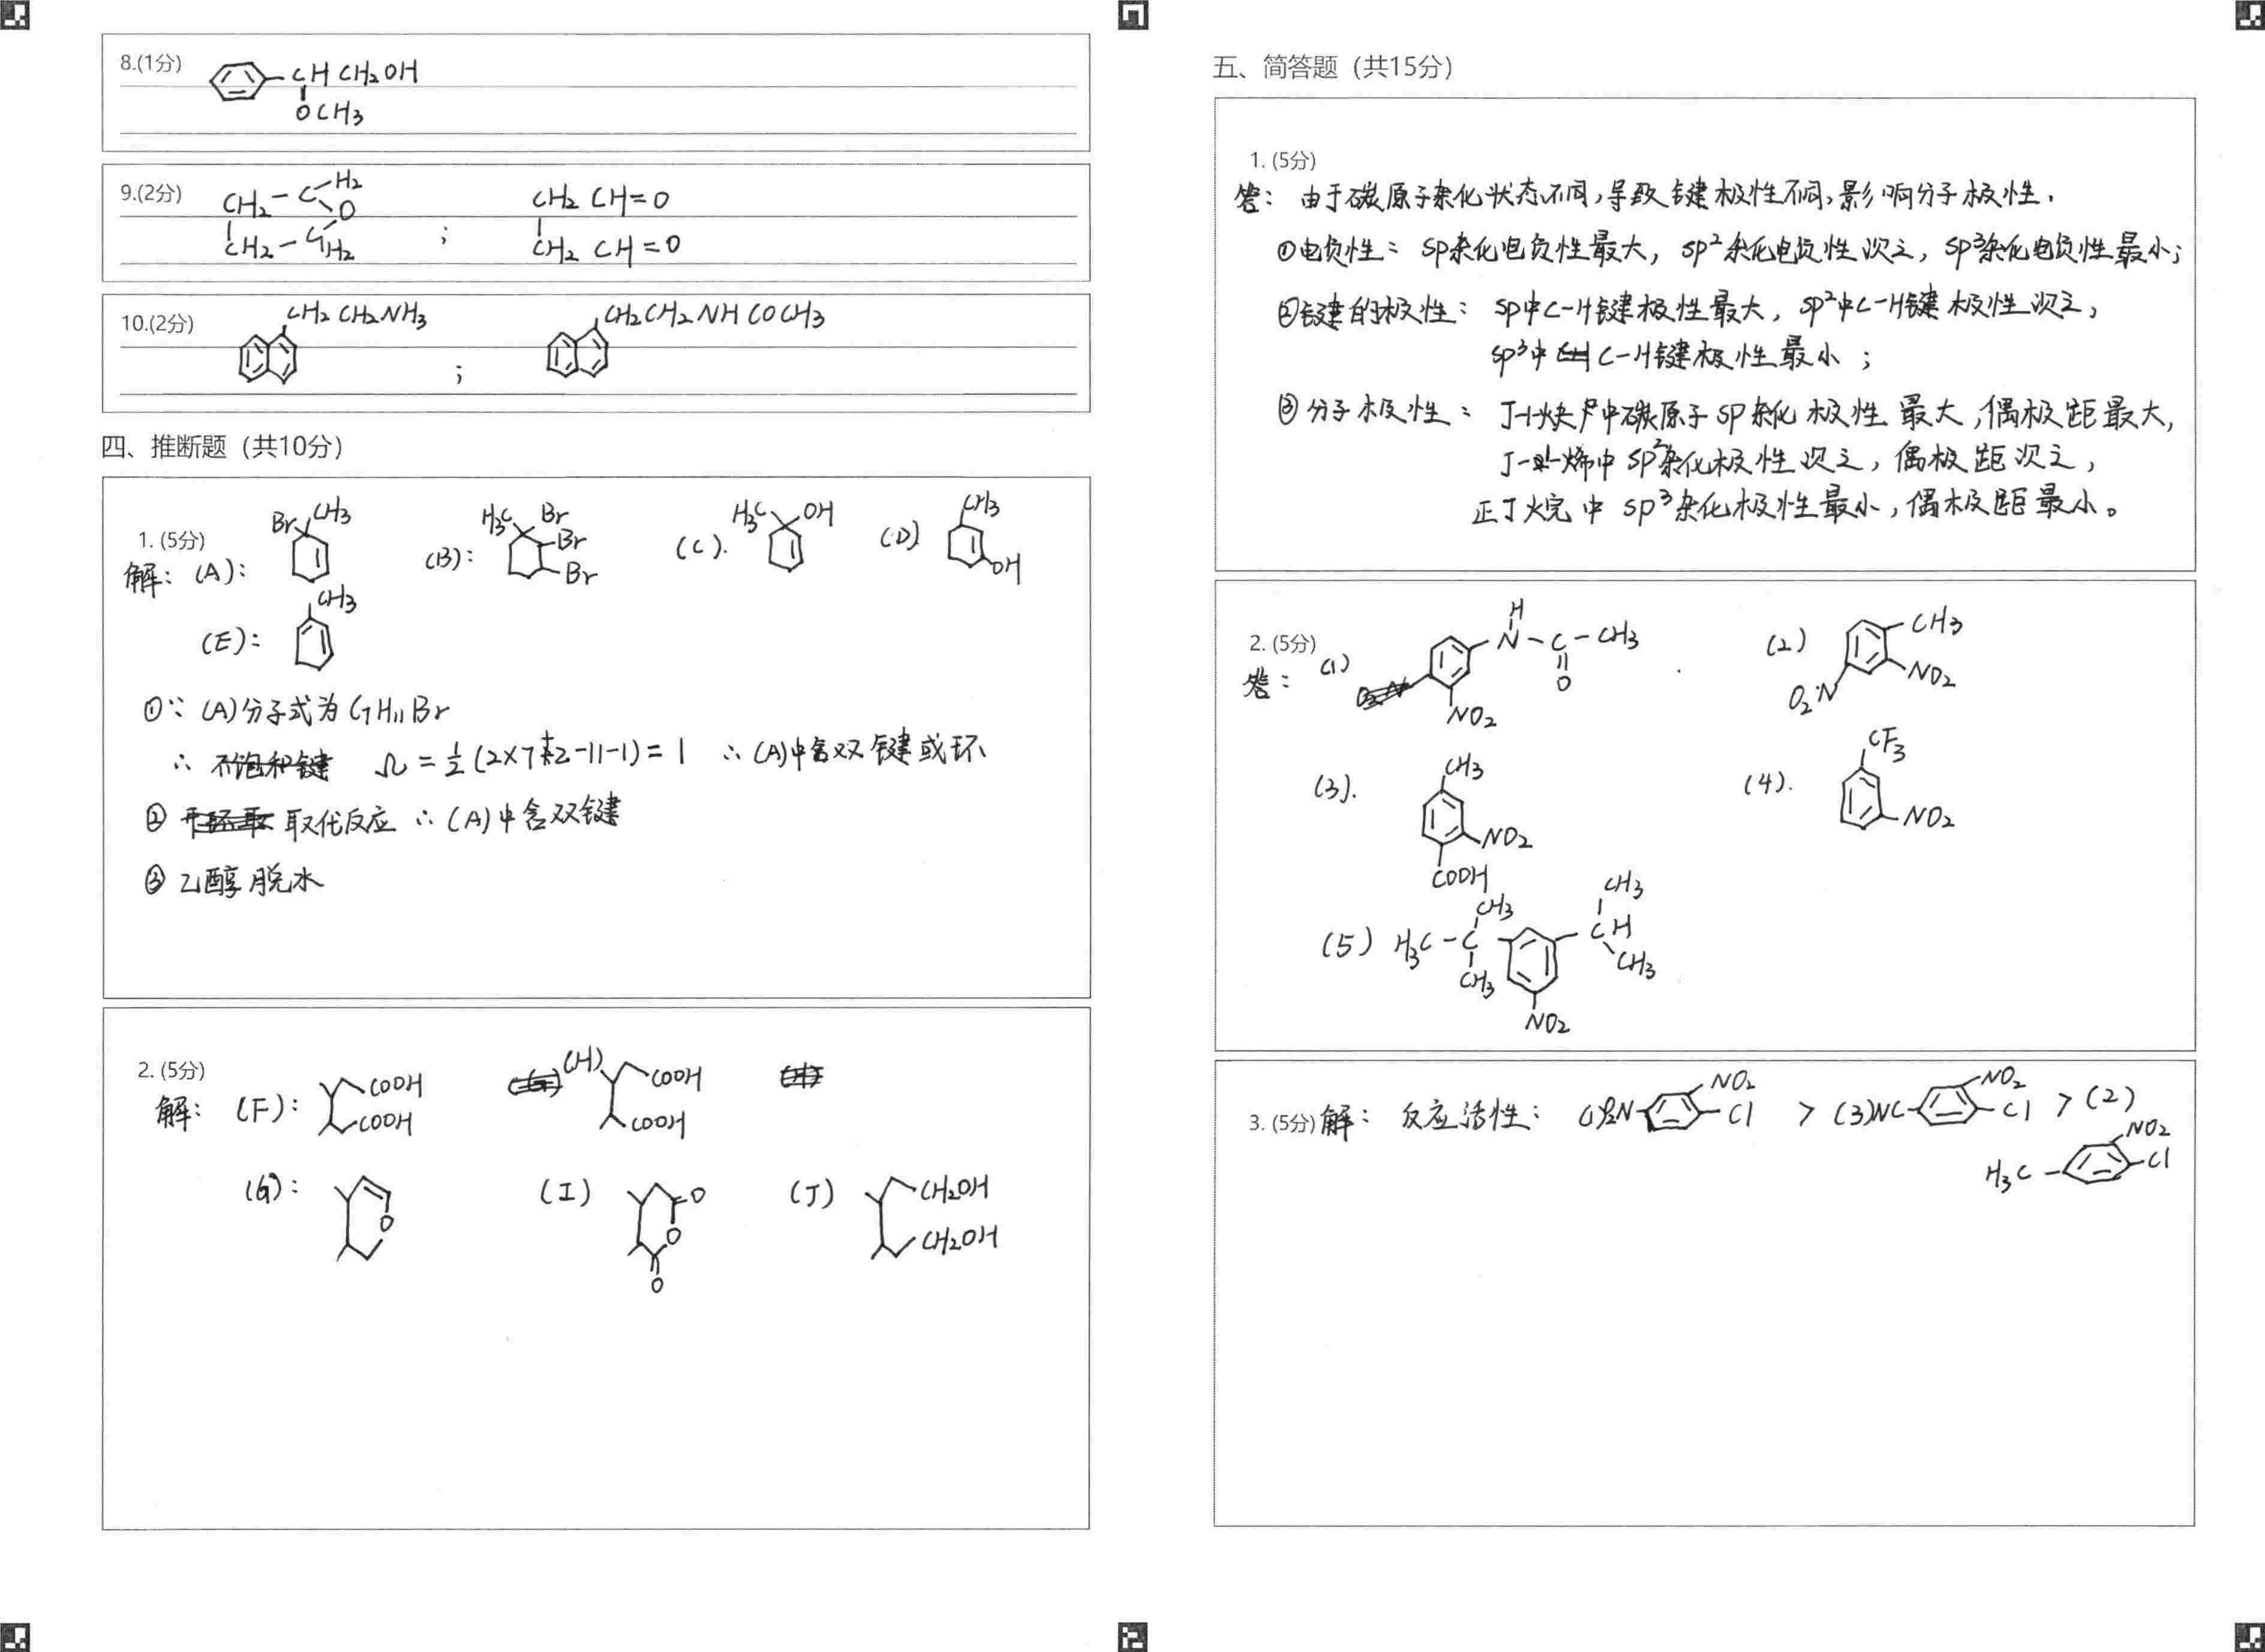 8.(1分)
CH CH₂OH
OCH₃
9.(2分)
CH₂-C H₂
O
CH₂-C H₂
;
CH₂ CH=O
CH₂ CH=O
10.(2分)
CH₂CH₂NH₃
;
CH₂CH₂NHCOCH₃
四、推断题（共10分）
1. (5分)
解: (A):
Br CH₃
(B):
H₃C Br
Br
Br
(C).
H₃C OH
(D)
CH₃
OH
(E):
CH₃
①∵ (A)分子式为C₇H₁₁Br
∴ 不饱和键 Ω = ½(2×7+2-11-1)= 1 ∴(A)中含双键或环
② 开环取 取代反应 ∴(A)中含双键
③ 乙醇脱水
2. (5分)
解: (F):
COOH
COOH
(G) (H)
COOH
COOH
(H)
(G):
O
(I)
O
O
O
(J)
CH₂OH
CH₂OH
五、简答题（共15分）
1. (5分)
答: 由于碳原子杂化状态不同,导致键极性不同,影响分子极性.
①电负性: sp杂化电负性最大, sp²杂化电负性次之, sp³杂化电负性最小;
②键的极性: sp中C-H键极性最大, sp²中C-H键极性次之,
sp³中 CH C-H键极性最小;
③分子极性: 丁-1-炔中碳原子sp杂化极性最大,偶极距最大,
丁-1-烯中sp²杂化极性次之, 偶极距次之,
正丁烷中 sp³杂化极性最小,偶极距最小。
2. (5分)
答: (1)
O₂N
H
N-C-CH₃
O
NO₂
(2)
CH₃
NO₂
O₂N
(3).
CH₃
NO₂
COOH
(4).
CF₃
NO₂
(5)
CH₃
H₃C-C
CH₃
CH₃
CH
CH₃
NO₂
3. (5分) 解: 反应活性: (1)O₂N NO₂ Cl > (3)NC NO₂ Cl > (2)
H₃C NO₂ Cl